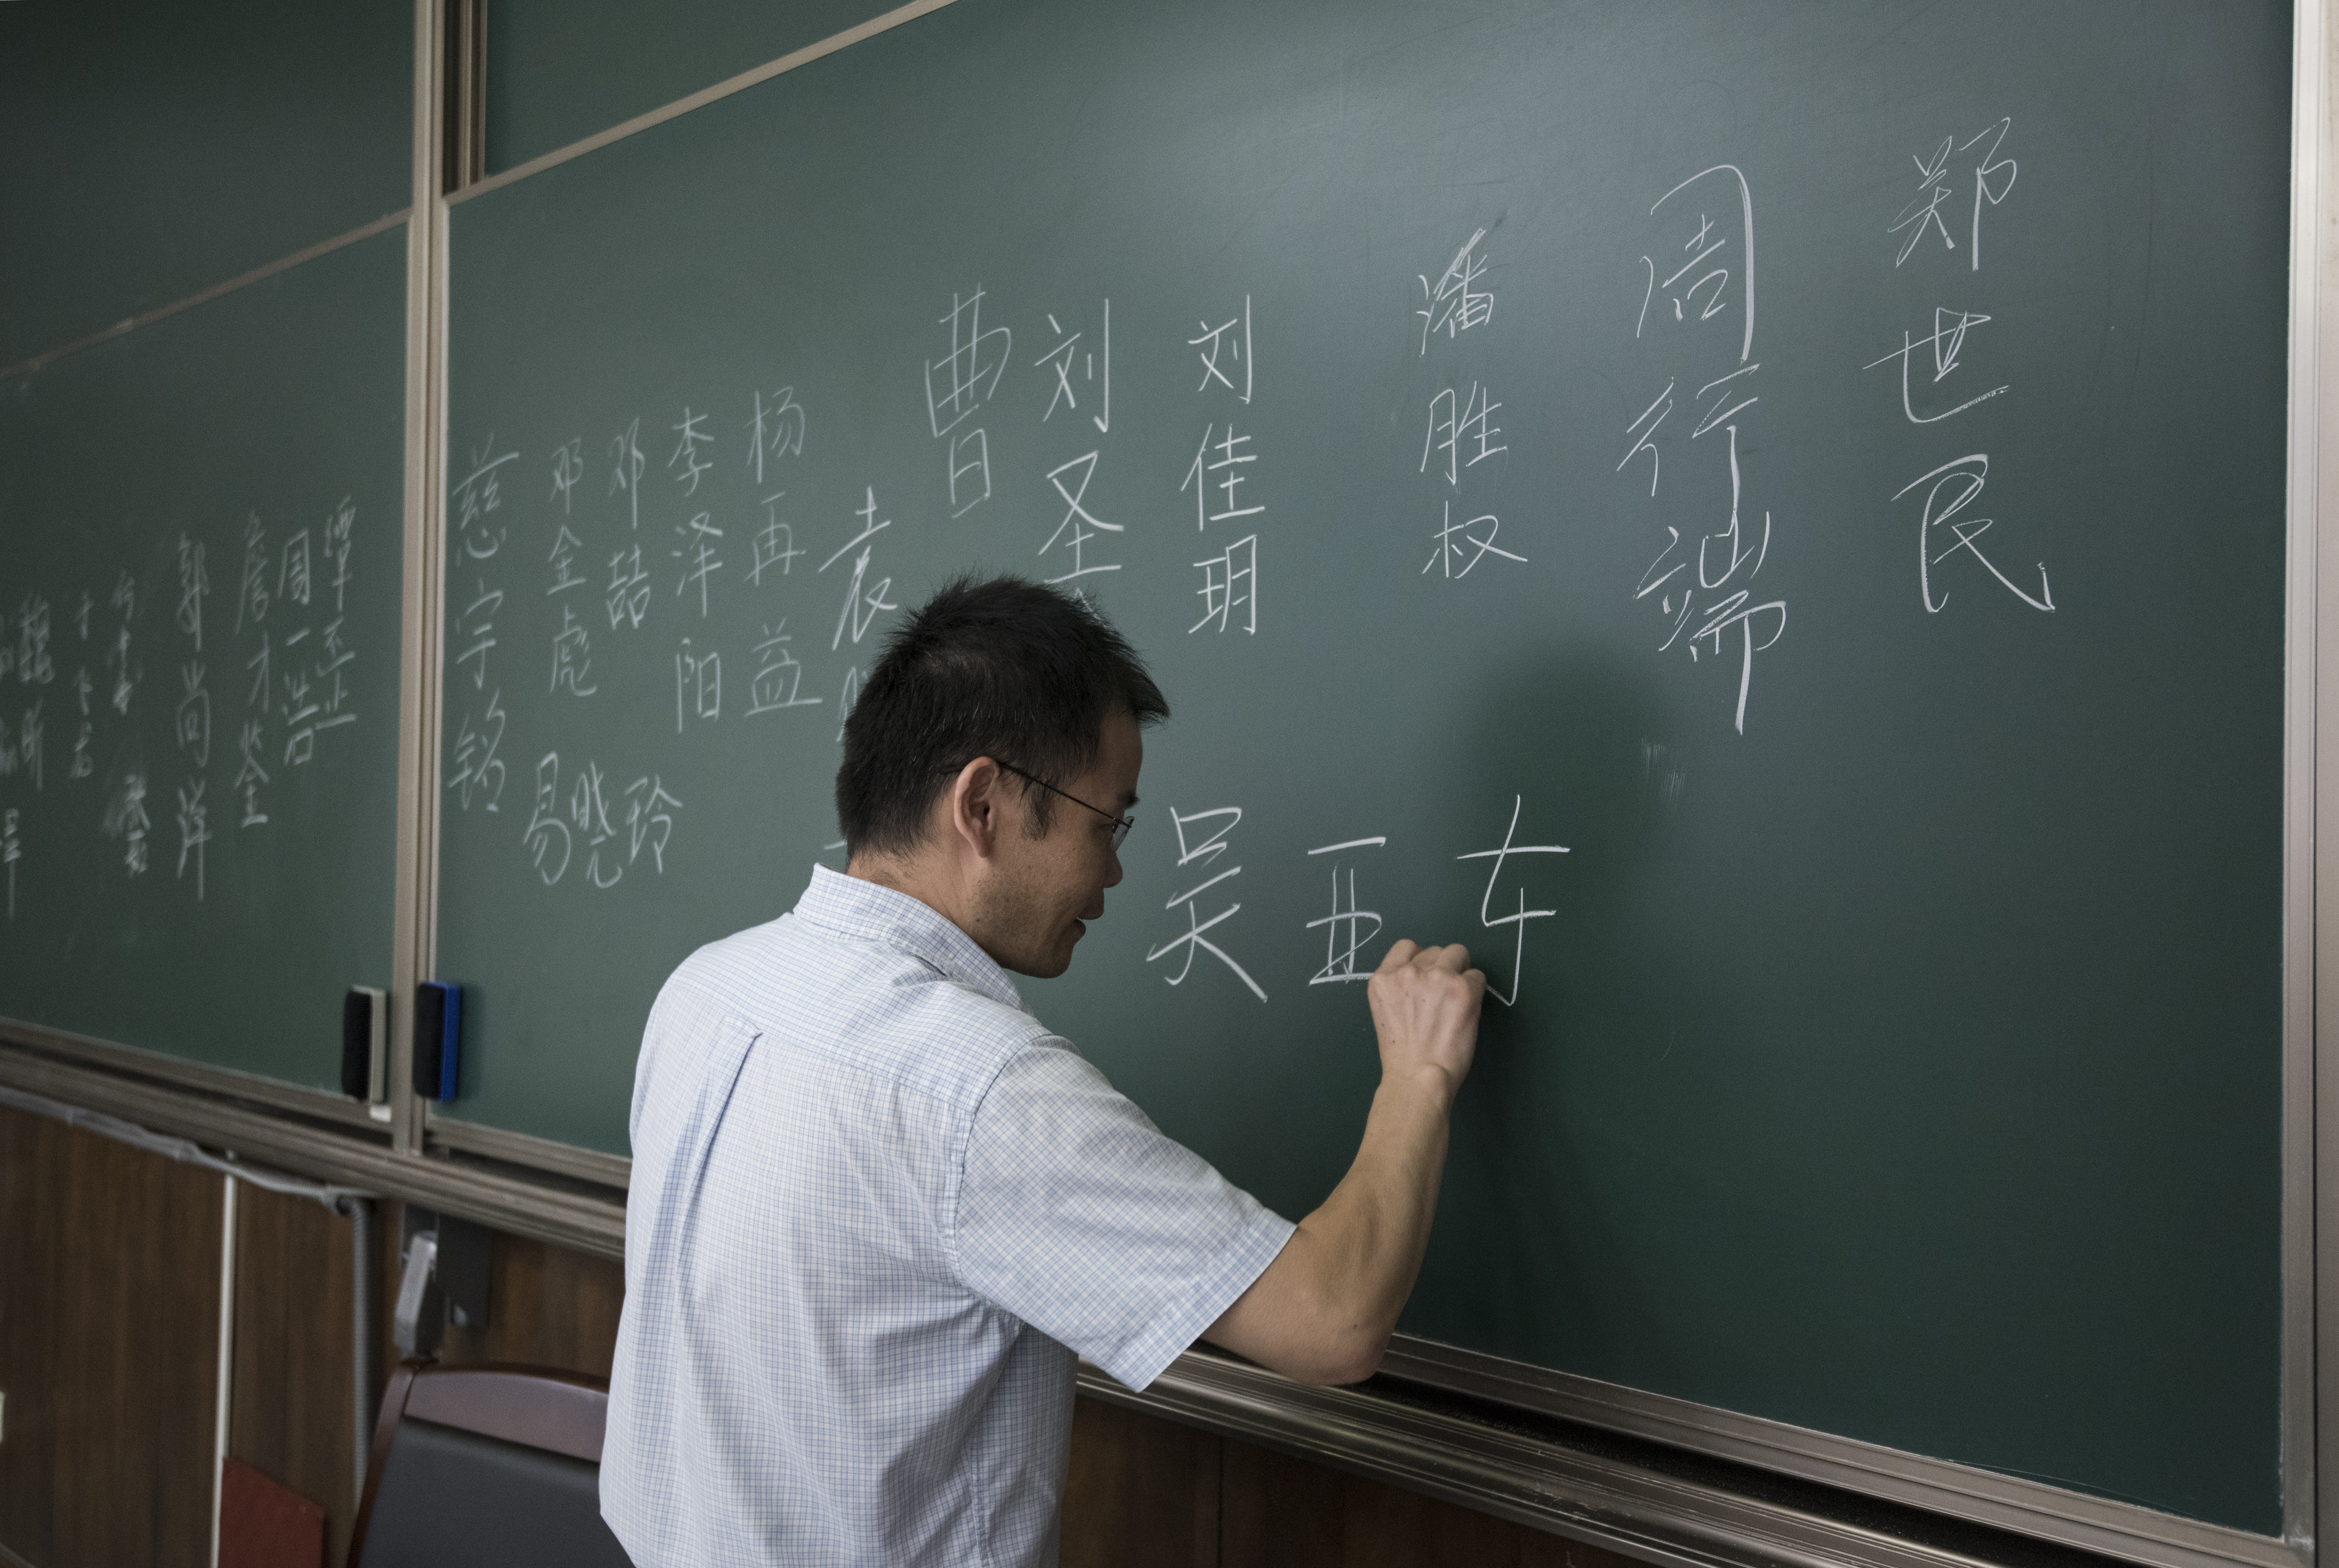 郑世民
周行端
潘胜权
刘佳玥
刘圣
曹日
袁
杨再益
李泽阳
邓喆
邓金彪
慈宇铭
易晓玲
吴亚东
谭丕正
周一浩
詹才荃
郭尚洋
魏昕